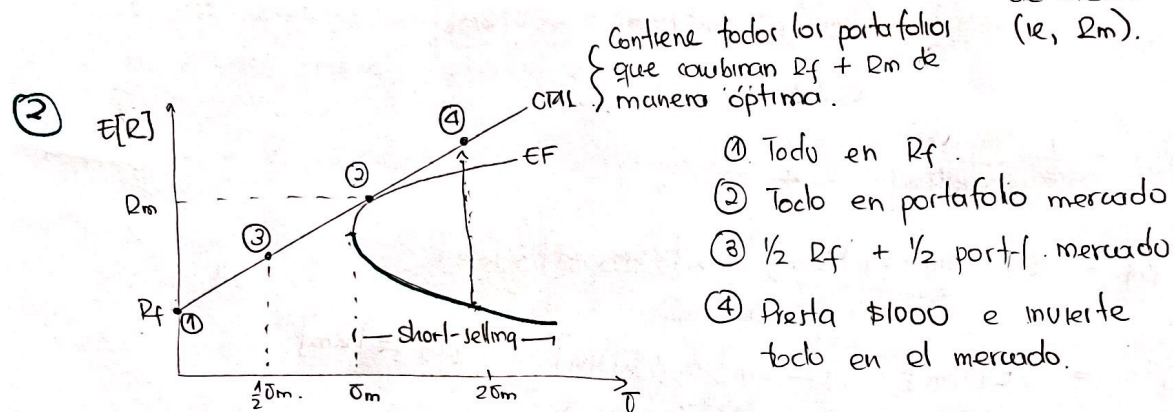 Contiene todos los portafolios (ie, Rm).
que combinan Rf + Rm de
manera óptima.
②
E[R]
④
CML
②
EF
Rm
③
Rf
①
short-selling
½σm.
σm
2σm
σ
① Todo en Rf.
② Todo en portafolio mercado
③ ½ Rf + ½ port-f. mercado
④ Presta $1000 e invierte
todo en el mercado.